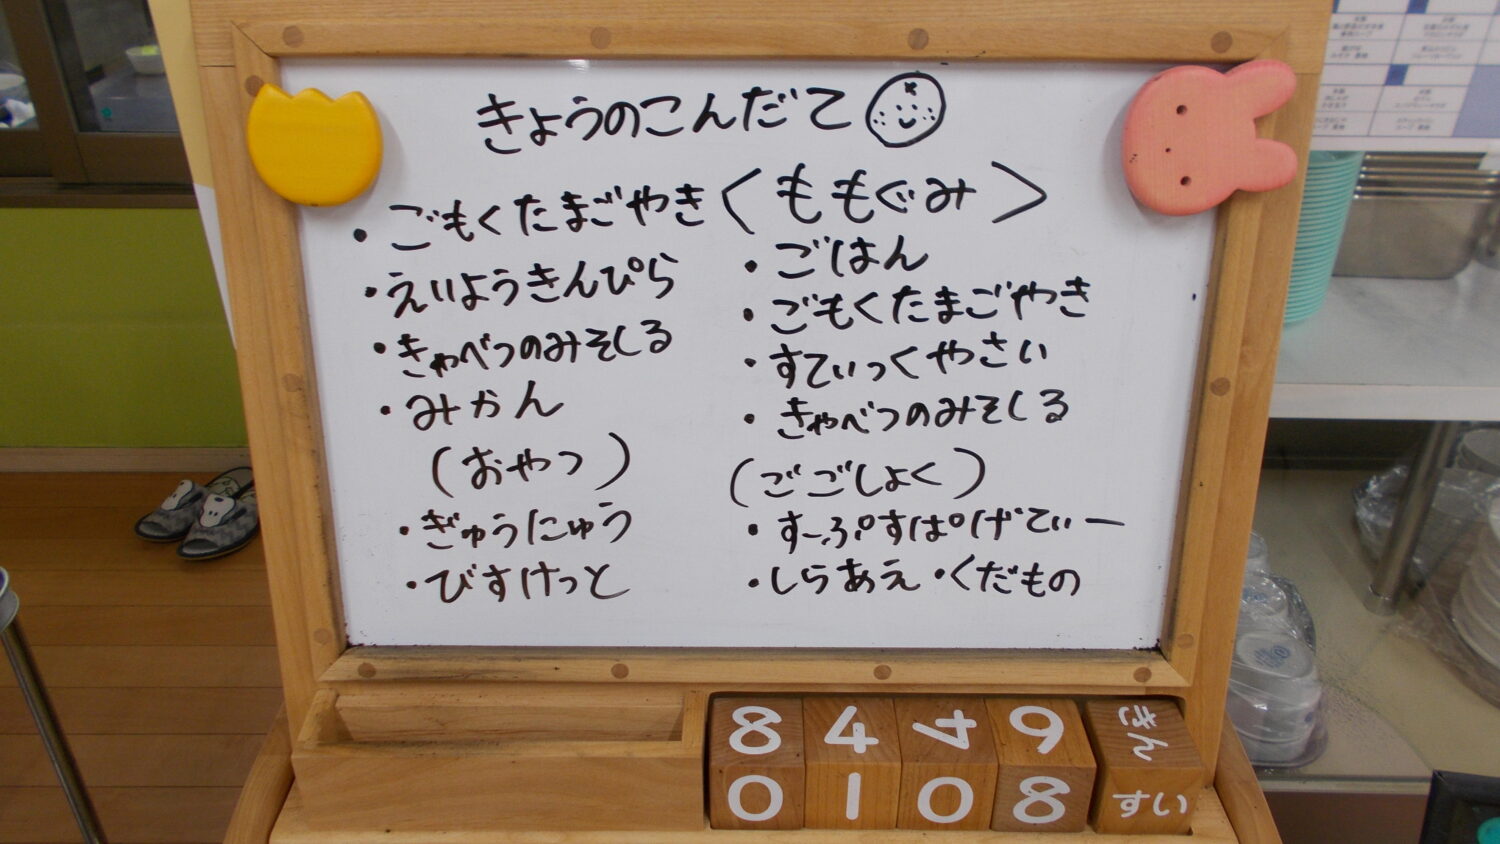 きょうのこんだて
・ごもくたまごやき
・えいようきんぴら
・きゃべつのみそしる
・みかん
(おやつ)
・ぎゅうにゅう
・びすけっと
<ももぐみ>
・ごはん
・ごもくたまごやき
・すてぃっくやさい
・きゃべつのみそしる
(ごごしょく)
・すーぷすぱげてぃー
・しらあえ・くだもの
8 4 4 9 きん
0 1 0 8 すい